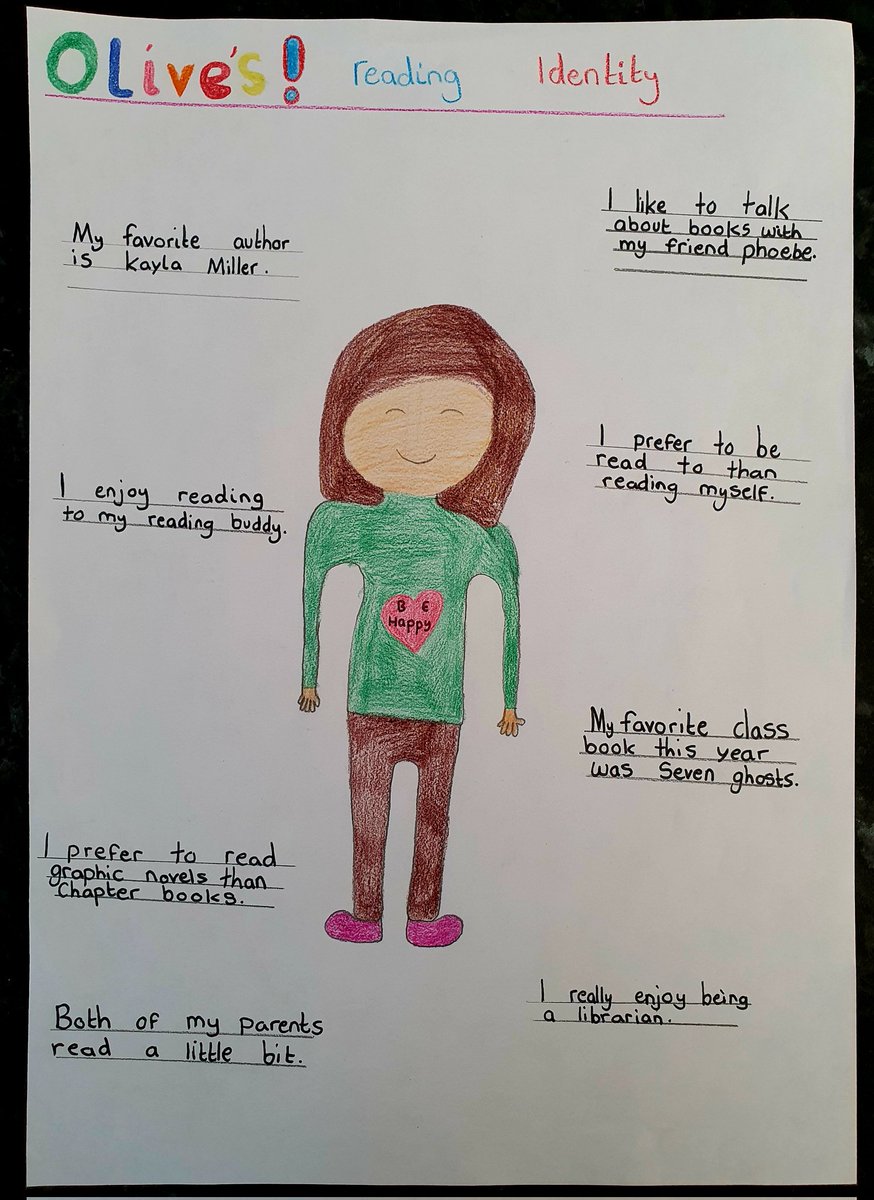 OLive's! reading Identity
My favorite author
is Kayla Miller.
I like to talk
about books with
my friend phoebe.
I enjoy reading
to my reading buddy.
I prefer to be
read to than
reading myself.
B E
Happy
My favorite class
book this year
was Seven ghosts.
I prefer to read
graphic novels than
Chapter books.
Both of my parents
read a little bit.
I really enjoy being
a librarian.